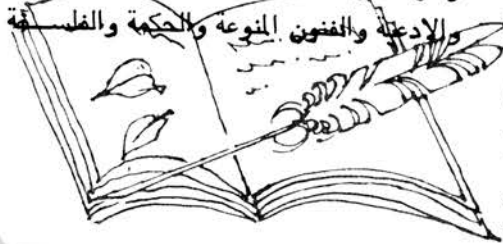 والادعية والفنون المنوعه والحكمة والفلسفة